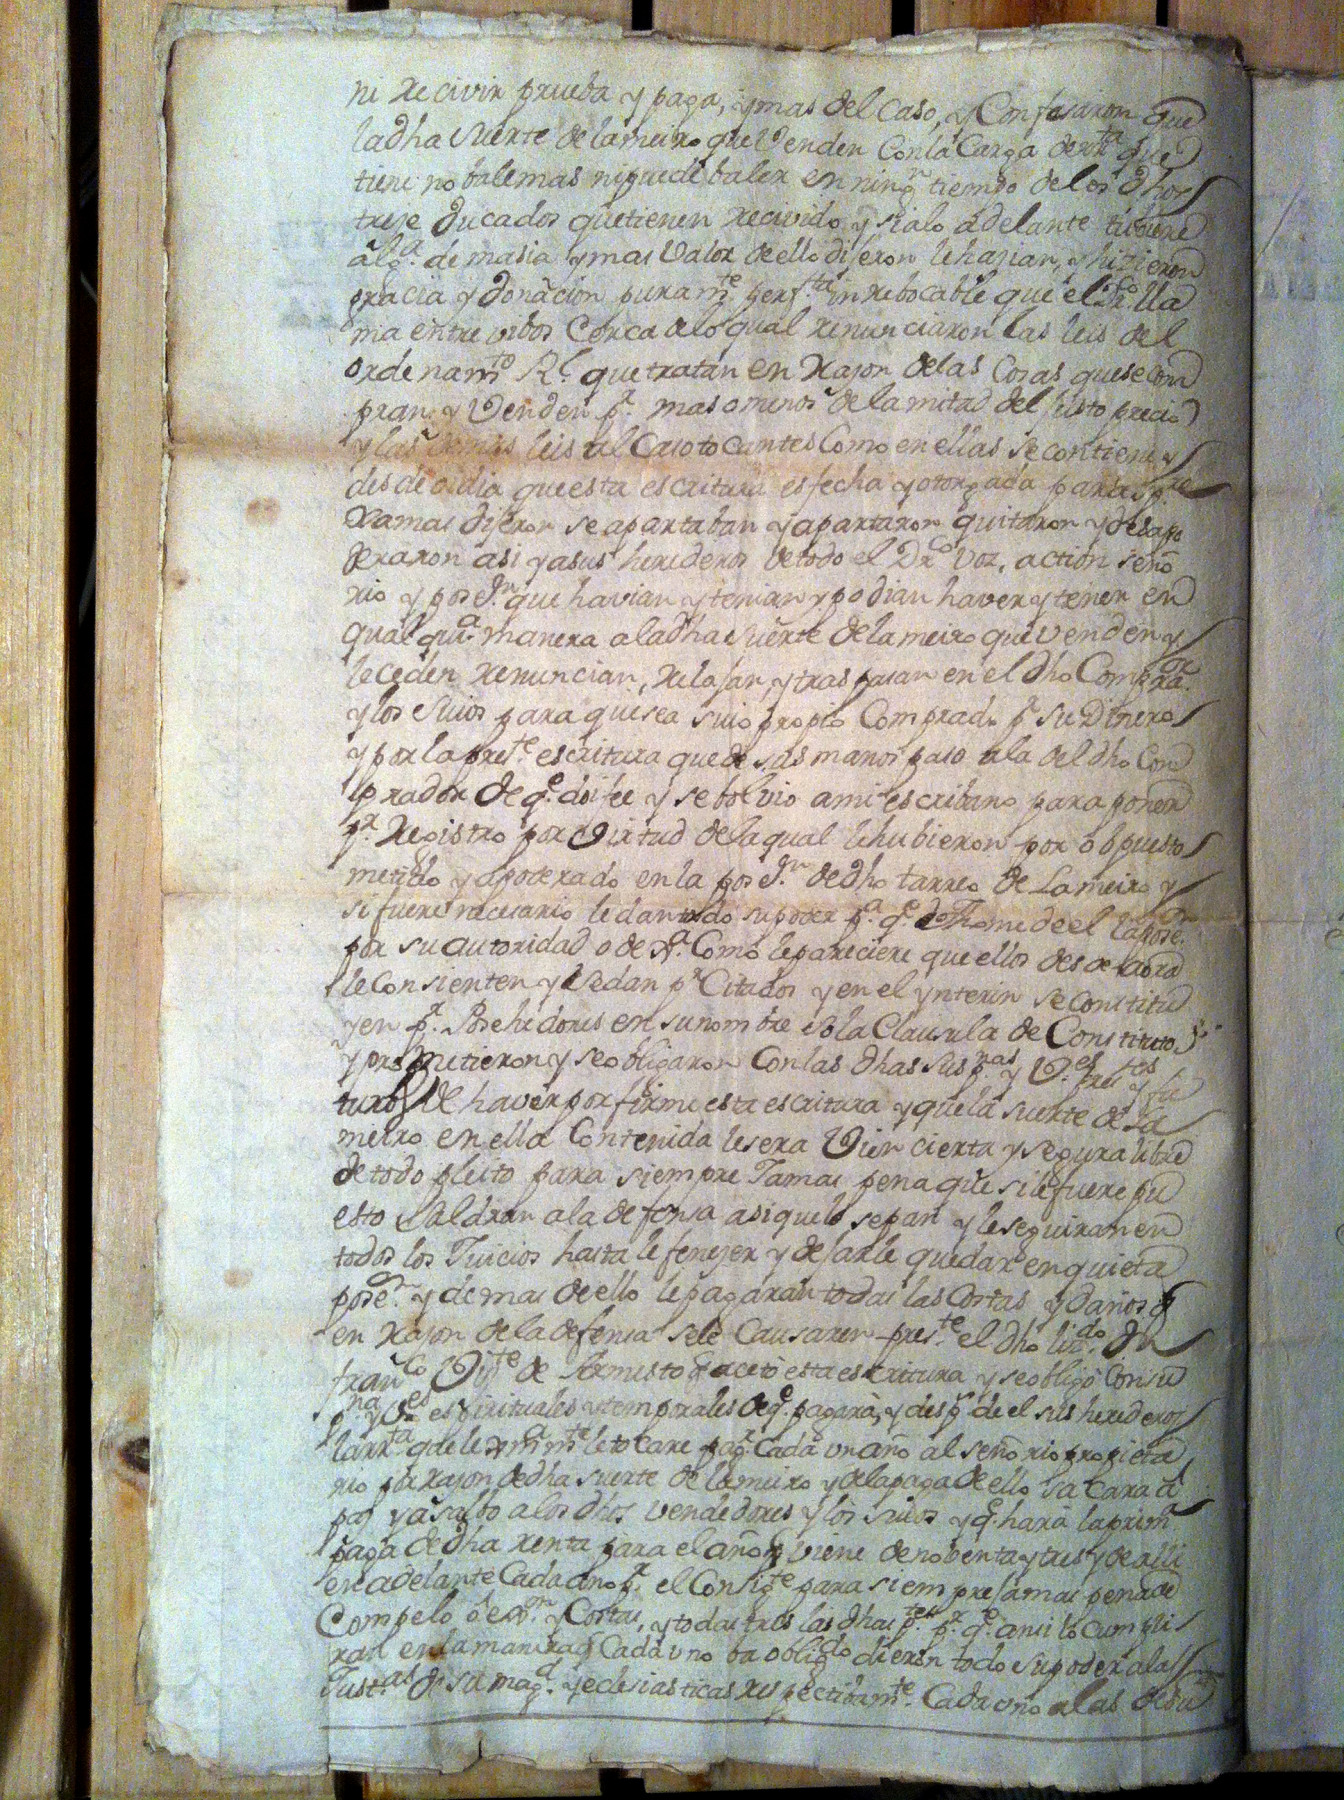 ni Recivir prueba y paga, y mas del Caso, y Confesaron que
la dha suerte de lameiro que Venden Con la Carga de rta que
tiene no bale mas ni puede baler en ningn tiempo de los dhos
treze ducados que tienen recivido, y si alo adelante tubiere
alga demasia y mas Valor de ello dijeron le hazian, y hizieron
gracia y donacion puramte perfta inrebocable que el dro lla
ma entre vibos Cerca de lo qual renunciaron las leis del
ordenamto Rl que tratan en Razon de las Cosas que se com
pran y Venden pr mas o menos de la mitad del justo precio
y las demas leis al Caso tocantes Como en ellas se contiene y
desde oidia que esta escritura es fecha y otorgada para spre
Xamas dijeron se apartaban y apartaron quitaron y desapo
deraron asi y a sus herederos de todo el Drcho Voz, action seño
rio y posesn que havian y tenian y podian haver y tener en
qualqua manera a la dha suerte de lameiro que venden y
le ceden renuncian, relajan, y traspasan en el dho Compror
y los suios para que sea suio propio Comprado pr su Dinero
y por la preste escritura que de sus manos paso a la del dho Com
prador de qe doi fee y se bolvio a mi escribano para poner
pr Registro por Virtud de la qual le hubieron por obpuesto
metido y apoderado en la posesn de dho tarreo de Lameiro y
si fuere necesario le dan todo su poder pa qe tome de el la posen
por su autoridad o de Ja Como le pareciere que ellos desde aora
le Consienten y Vedan pr Citados y en el ynterin se Constitu
yen pr Posehedores en su nombre so la Clausula de Constituto
y prometieron y se obligaron Con las dhas sus pnas y Ves prestes y fu
turos de haver por firme esta escritura y que la suerte de La
meiro en ella Contenida le sera Vien cierta y segura libre
de todo pleito para siempre Jamas pena que si le fuere pu
esto Saldran a la defensa asi que lo sepan y le seguiran en
todos los Juicios hasta le fenezer y dejarle quedar en quieta
posen y demas de ello le pagaran todas las Costas y daños q
en Razon de la defensa se le Causaren preste el dho lizdo Dn
franco Vizte de Armesto q aceto esta escritura y se obligo Con su
pna y Ves espirituales y temporales de qe pagara, y desp de el sus herederos
la rrta qe le leto Care pagr Cada un año al señorio propieta
rio por razon de dha suerte de lameiro y de la paga de ello sacara a
paz y a salbo a los dhos vendedores y los suios y qe hara la prima
paga de dha renta para el año q viene de nobenta y tres y de alli
en adelante Cada año pr el Consigte para siempre jamas pena de
Compelo o exon y Costas, y todas tres las dhas ptes pr qe ansi lo cumpli
ran en la manera q Cada uno ba obligdo dieron todo su poder a las
Justas de su Magd y eclesiasticas respectibamte Cada uno a las de su